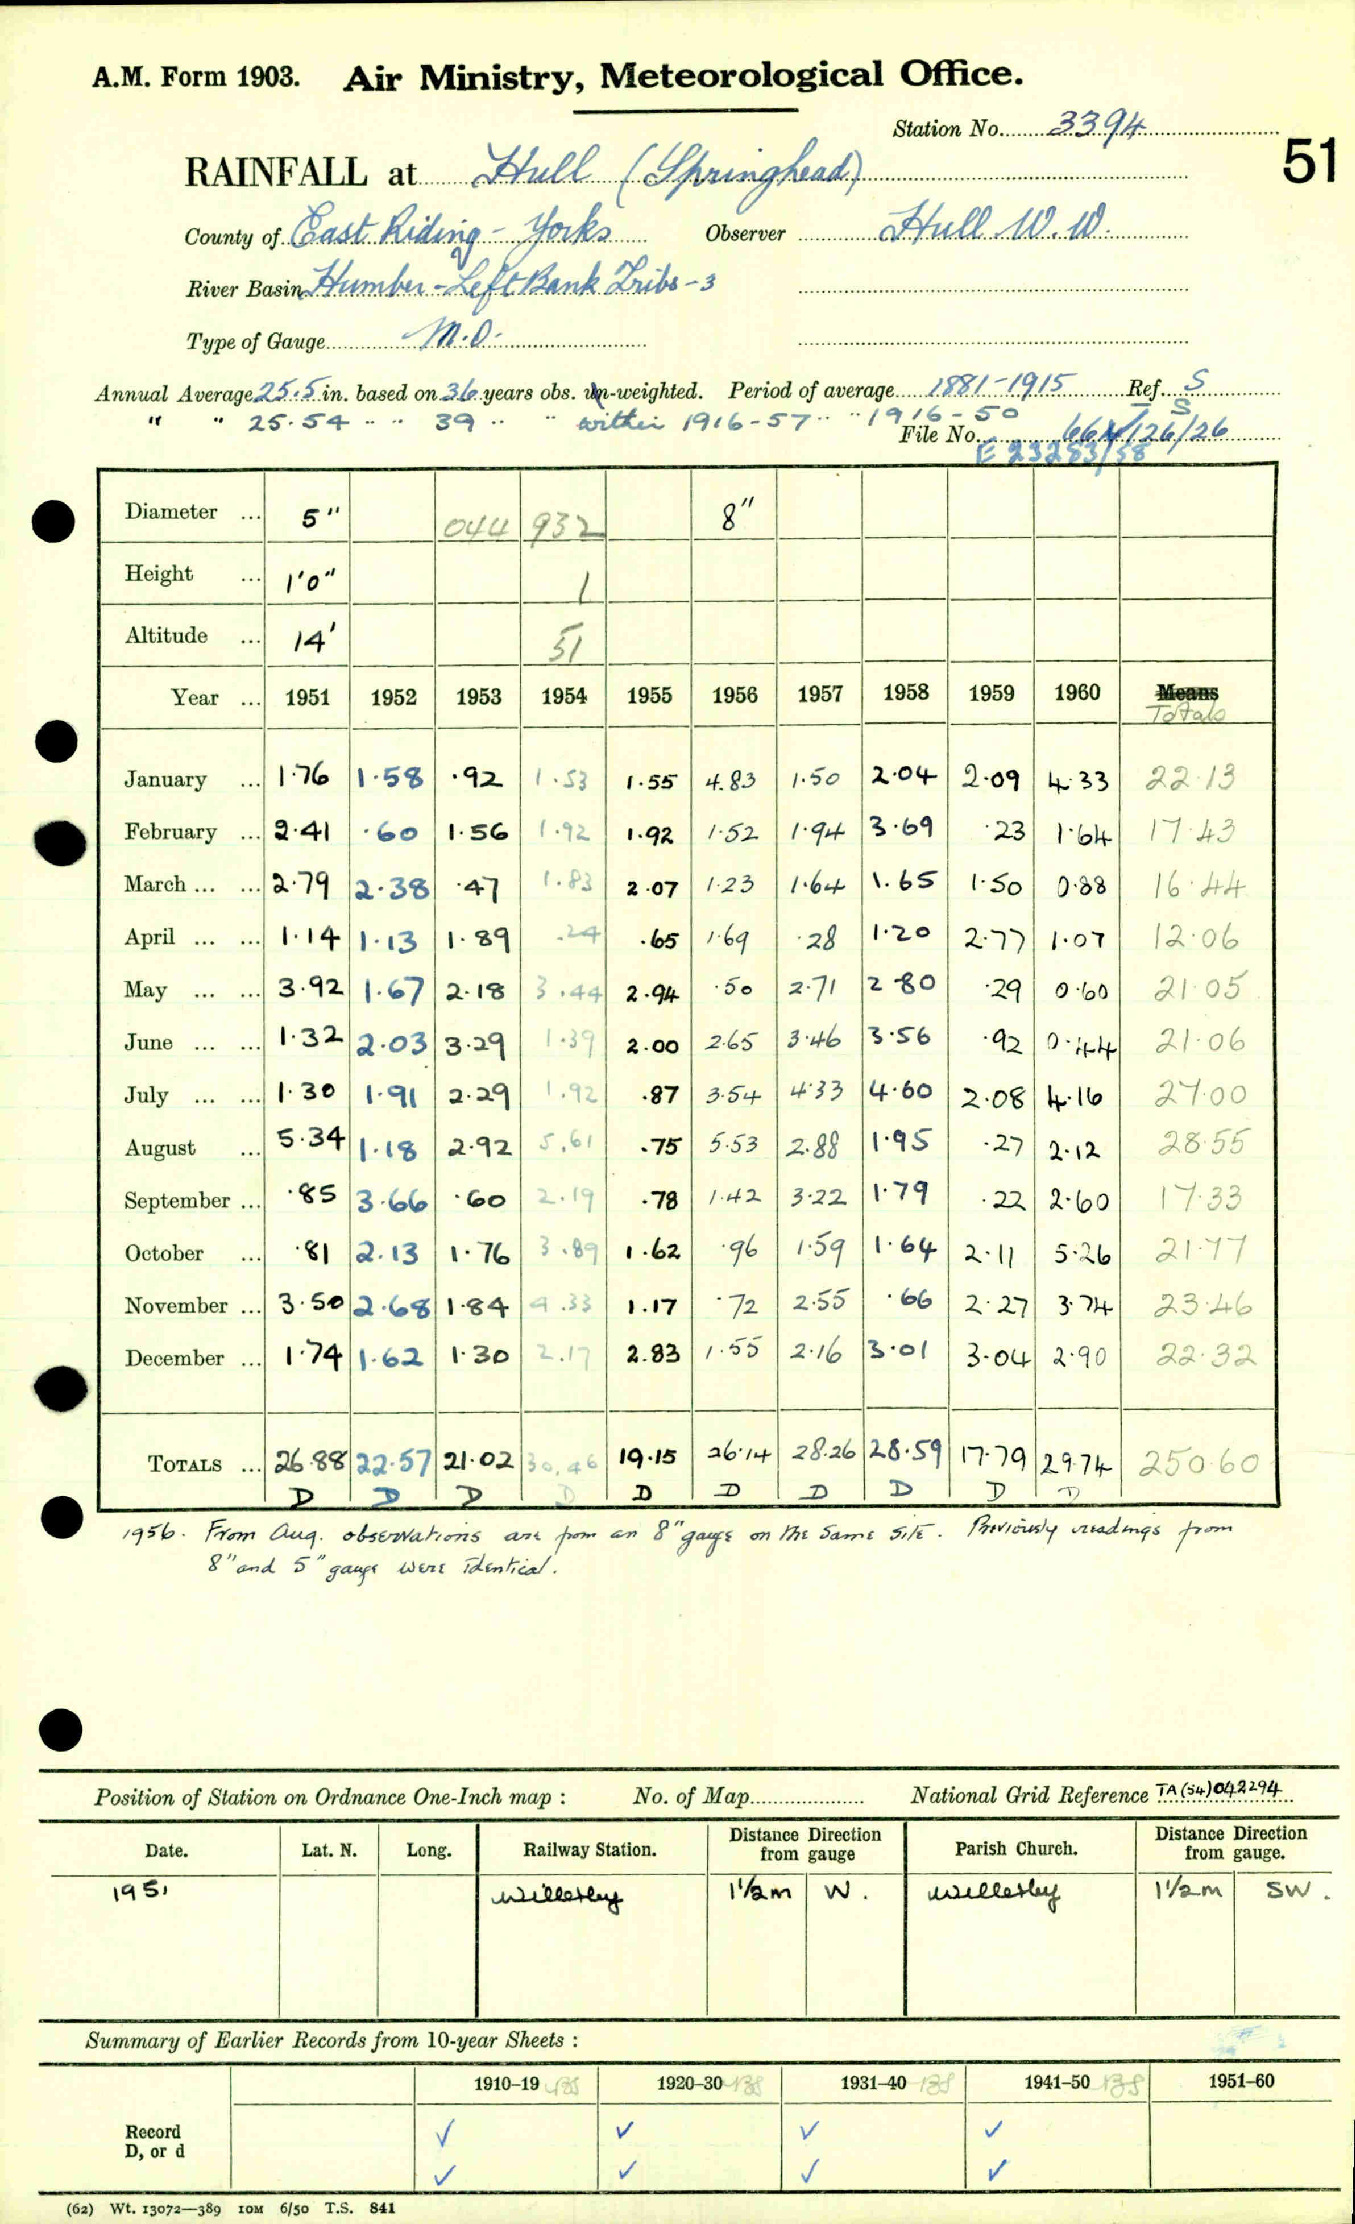 A.M. Form 1903. Air Ministry, Meteorological Office.
Station No. 3394
51
RAINFALL at Hull (Springhead)
County of East Riding - Yorks Observer Hull W.W.
River Basin Humber - Left Bank Tribs - 3
Type of Gauge M.O.
Annual Average 25.5 in. based on 36 years obs. un-weighted. Period of average 1881-1915 Ref. S
" " 25.54 " " 39 " " within 1916-57 " " 1916-50 S
File No. 664/126/26
E 23283/58
Diameter ... 5" 044 932 8"
Height ... 1'0" 1
Altitude ... 14' 51
Year ... 1951 1952 1953 1954 1955 1956 1957 1958 1959 1960 Means
Totals
January ... 1.76 1.58 .92 1.53 1.55 4.83 1.50 2.04 2.09 4.33 22.13
February ... 2.41 .60 1.56 1.92 1.92 1.52 1.94 3.69 .23 1.64 17.43
March ... ... 2.79 2.38 .47 1.83 2.07 1.23 1.64 1.65 1.50 0.88 16.44
April ... ... 1.14 1.13 1.89 .24 .65 1.69 .28 1.20 2.77 1.07 12.06
May ... ... 3.92 1.67 2.18 3.44 2.94 .50 2.71 2.80 .29 0.60 21.05
June ... ... 1.32 2.03 3.29 1.39 2.00 2.65 3.46 3.56 .92 0.44 21.06
July ... ... 1.30 1.91 2.29 1.92 .87 3.54 4.33 4.60 2.08 4.16 27.00
August ... 5.34 1.18 2.92 5.61 .75 5.53 2.88 1.95 .27 2.12 28.55
September ... .85 3.66 .60 2.19 .78 1.42 3.22 1.79 .22 2.60 17.33
October ... .81 2.13 1.76 3.89 1.62 .96 1.59 1.64 2.11 5.26 21.77
November ... 3.50 2.68 1.84 4.33 1.17 .72 2.55 .66 2.27 3.74 23.46
December ... 1.74 1.62 1.30 2.17 2.83 1.55 2.16 3.01 3.04 2.90 22.32
TOTALS ... 26.88 22.57 21.02 30.46 19.15 26.14 28.26 28.59 17.79 29.74 250.60
D D D D D D D D D D
1956. From Aug. observations are from an 8" gauge on the same site. Previously readings from
8" and 5" gauge were identical.
Position of Station on Ordnance One-Inch map : No. of Map National Grid Reference TA(54)042294
Date. Lat. N. Long. Railway Station. Distance from Direction gauge Parish Church. Distance from Direction gauge.
1951 Willerby 1½m W. Willerby 1½m SW.
Summary of Earlier Records from 10-year Sheets :
1910–19 1920–30 1931–40 1941–50 1951–60
Record ✓ ✓ ✓ ✓
D, or d ✓ ✓ ✓ ✓
(62) Wt. 13072—389 10M 6/50 T.S. 841